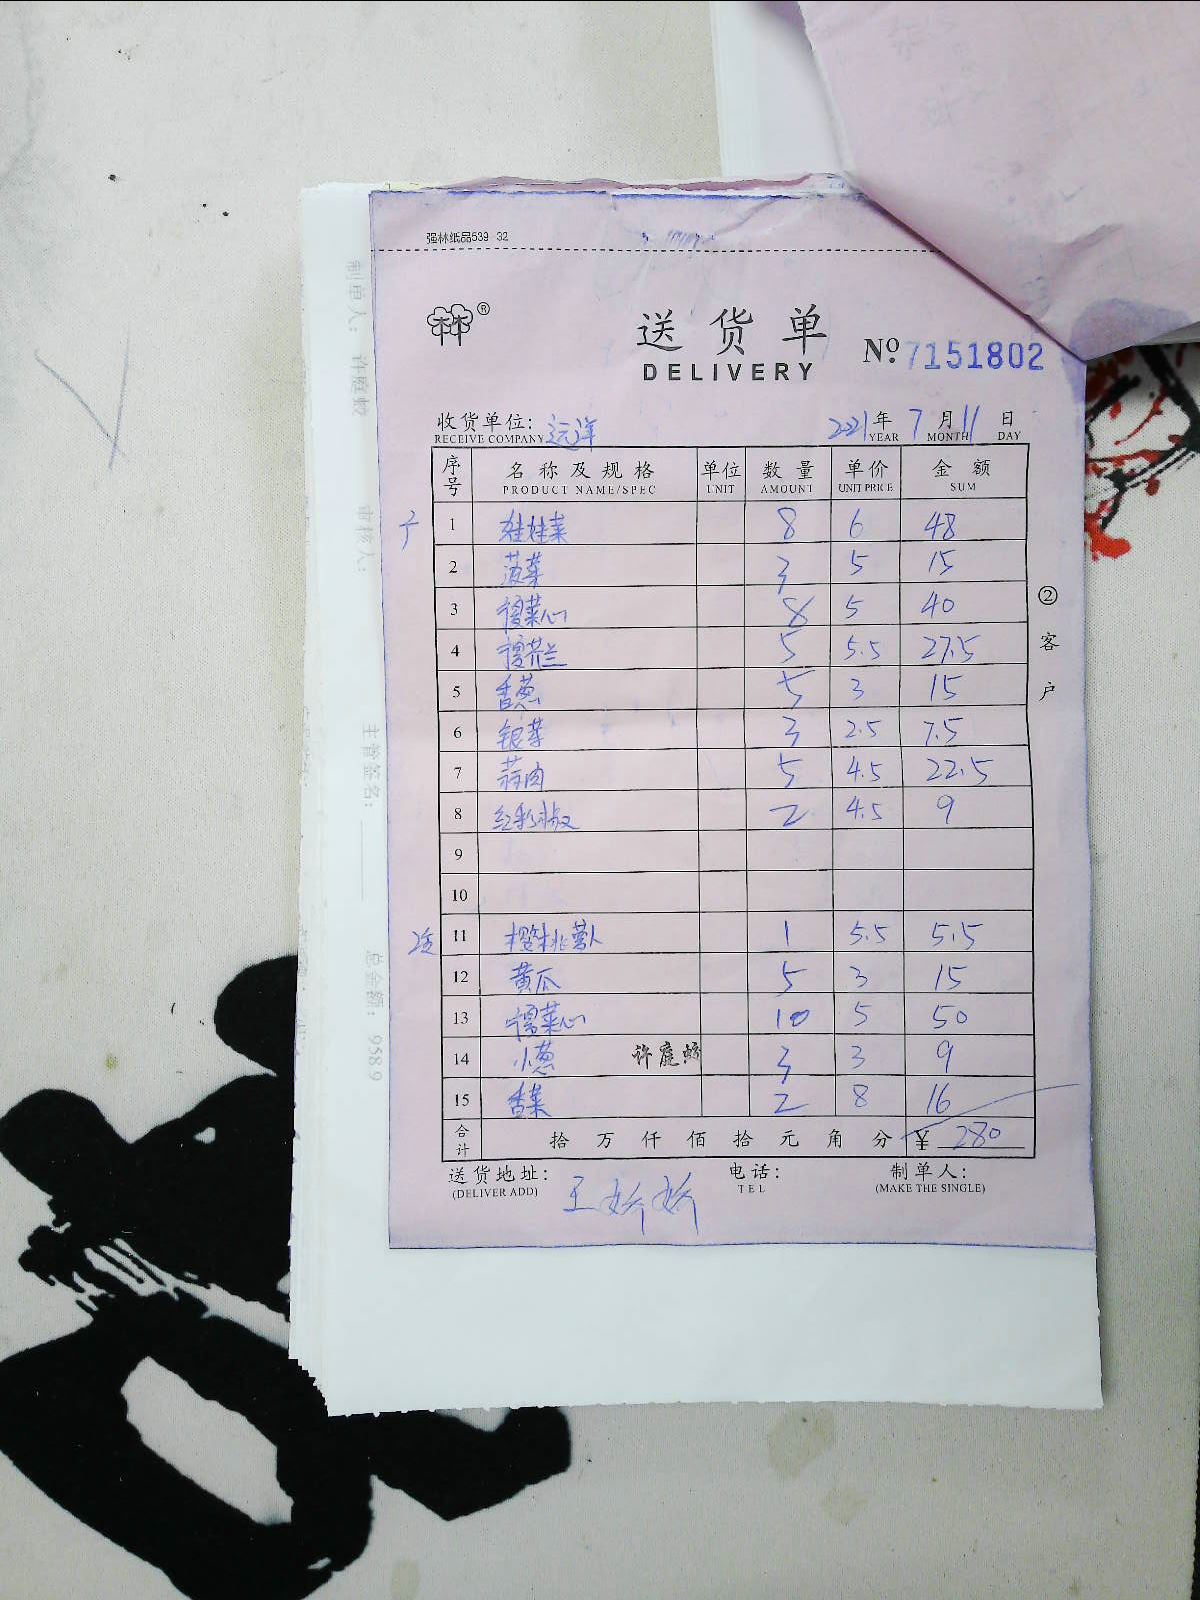 强林纸品539 32
林®
送货单
DELIVERY
Nº 7151802
收货单位: 远洋 2021年 7月 11日
RECEIVE COMPANY YEAR MONTH DAY
序号 名称及规格 单位 数量 单价 金额
PRODUCT NAME/SPEC UNIT AMOUNT UNIT PRICE SUM
1 娃娃菜 8 6 48
2 菠菜 3 5 15
3 菜心 8 5 40
4 芥兰 5 5.5 27.5
5 香葱 5 3 15
6 银芽 3 2.5 7.5
7 蒜肉 5 4.5 22.5
8 红彩椒 2 4.5 9
9
10
11 樱桃萝卜 1 5.5 5.5
12 黄瓜 5 3 15
13 菜心 10 5 50
14 小葱 许庭蛟 3 3 9
15 香菜 2 8 16
合计 拾万仟佰拾元角分 ¥ 280
送货地址: 电话: 制单人:
(DELIVER ADD) TEL (MAKE THE SINGLE)
王娇娇
②客户
制单人: 许庭蛟
审核人:
主管签名:
总金额: 958.9